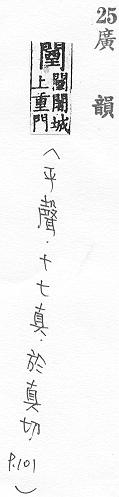 25 廣韻
闉 闉闍城上重門
(平聲．十七真．於真切．P.101)